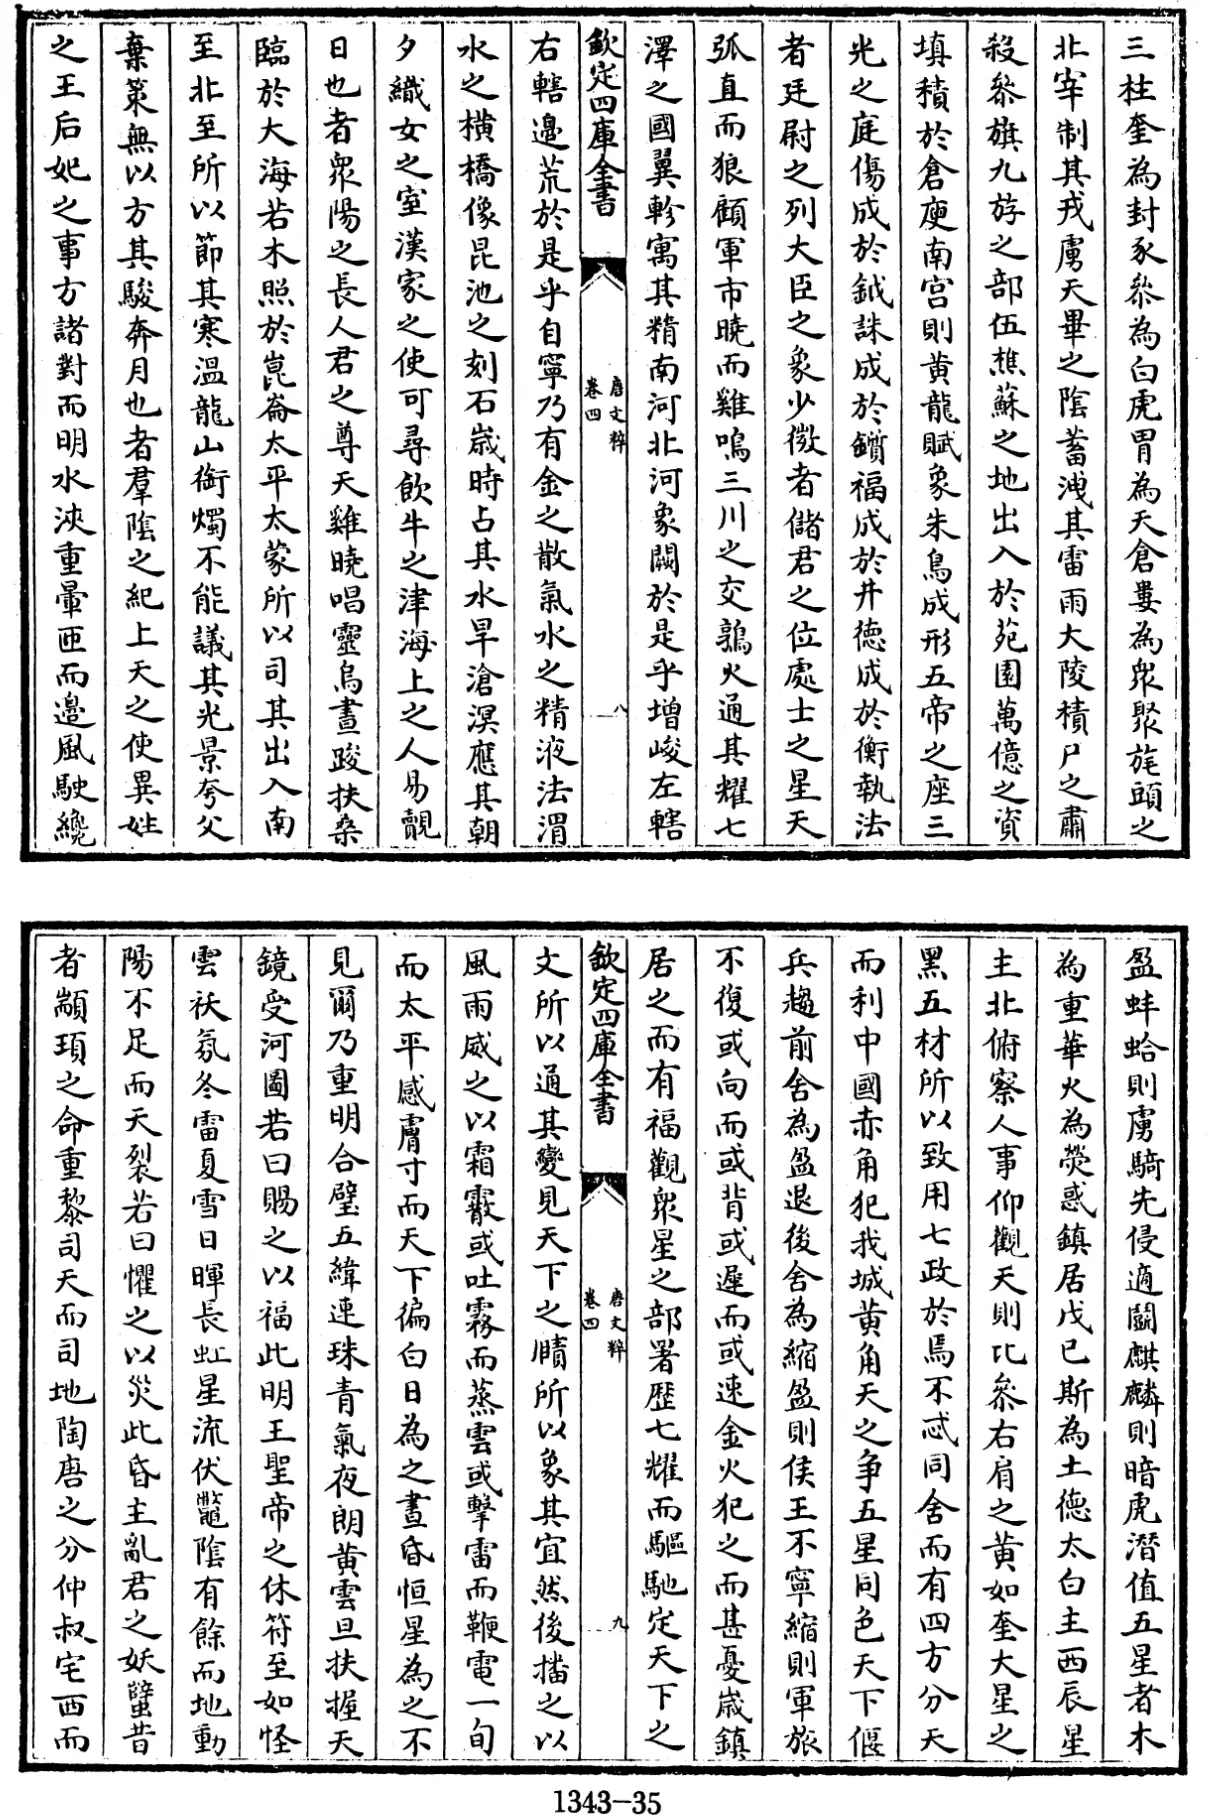 三柱奎為封豕參為白虎胃為天倉婁為衆聚旄頭之
北宰制其戎虜天畢之陰蓄洩其雷雨大陵積尸之肅
殺參旗九斿之部伍樵蘇之地出入於苑園萬億之資
填積於倉庾南宫則黄龍賦象朱鳥成形五帝之座三
光之庭傷成於鉞誅成於鑕福成於井德成於衡執法
者廷尉之列大臣之象少微者儲君之位處士之星天
弧直而狼顧軍市曉而雞鳴三川之交鶉火通其耀七
澤之國翼軫寓其精南河北河象闕於是乎增峻左轄
欽定四庫全書
唐文粹
卷四
八
右轄邉荒於是乎自寧乃有金之散氣水之精液法渭
水之横橋像昆池之刻石嵗時占其水旱滄溟應其朝
夕織女之室漢家之使可尋飲牛之津海上之人易覿
日也者衆陽之長人君之尊天雞曉唱靈烏晝踆扶桑
臨於大海若木照於崑崙太平太蒙所以司其出入南
至北至所以節其寒溫龍山銜燭不能議其光景夸父
棄策無以方其駿奔月也者羣陰之紀上天之使異姓
之王后妃之事方諸對而明水浹重暈匝而邉風駛纔
盈蚌蛤則虜騎先侵適鬭麒麟則暗虎潛值五星者木
為重華火為熒惑鎮居戊已斯為土德太白主西辰星
主北俯察人事仰觀天則比參右肩之黄如奎大星之
黑五材所以致用七政於焉不忒同舍而有四方分天
而利中國赤角犯我城黄角天之争五星同色天下偃
兵趨前舍為盈退後舍為縮盈則侯王不寧縮則軍旅
不復或向而或背或遲而或速金火犯之而甚憂嵗鎮
居之而有福觀衆星之部署歴七耀而驅馳定天下之
欽定四庫全書
唐文粹
卷四
九
文所以通其變見天下之賾所以象其宜然後播之以
風雨威之以霜霰或吐霧而蒸雲或擊雷而鞭電一旬
而太平感膚寸而天下徧白日為之晝昏恒星為之不
見爾乃重明合璧五緯連珠青氣夜朗黄雲旦扶握天
鏡受河圖若曰賜之以福此明王聖帝之休符至如怪
雲祅氛冬雷夏雪日暉長虹星流伏鼈陰有餘而地動
陽不足而天裂若曰懼之以災此昏主亂君之妖孽昔
者顓頊之命重黎司天而司地陶唐之分仲叔宅西而
1343-35